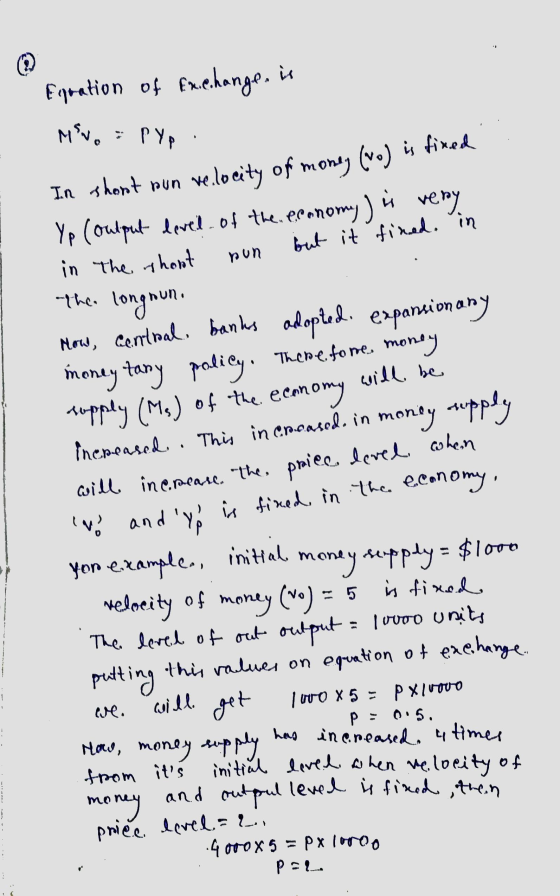 ②
Equation of Exchange. is
MˢV₀ = PYₚ .
In short run velocity of money (v₀) is fixed
Yₚ (output level of the economy) is very
in the short run but it fixed. in
the longrun.
Now, central banks adopted expansionary
money tary policy. Therefore money
supply (Mₛ) of the economy will be
increased. This increased in money supply
will increase the price level when
'v₀' and 'yₚ' is fixed in the economy.
for example., initial money supply = $1000
velocity of money (v₀) = 5 is fixed
The level of out output = 10000 units
putting this values on equation of exchange.
we. will get 1000 x 5 = P x 10000
P = 0.5.
Now, money supply has increased. 4 times
from it's initial level when velocity of
money and output level is fixed, then
price level = 2.
4000x5 = Px 10000
P = 2